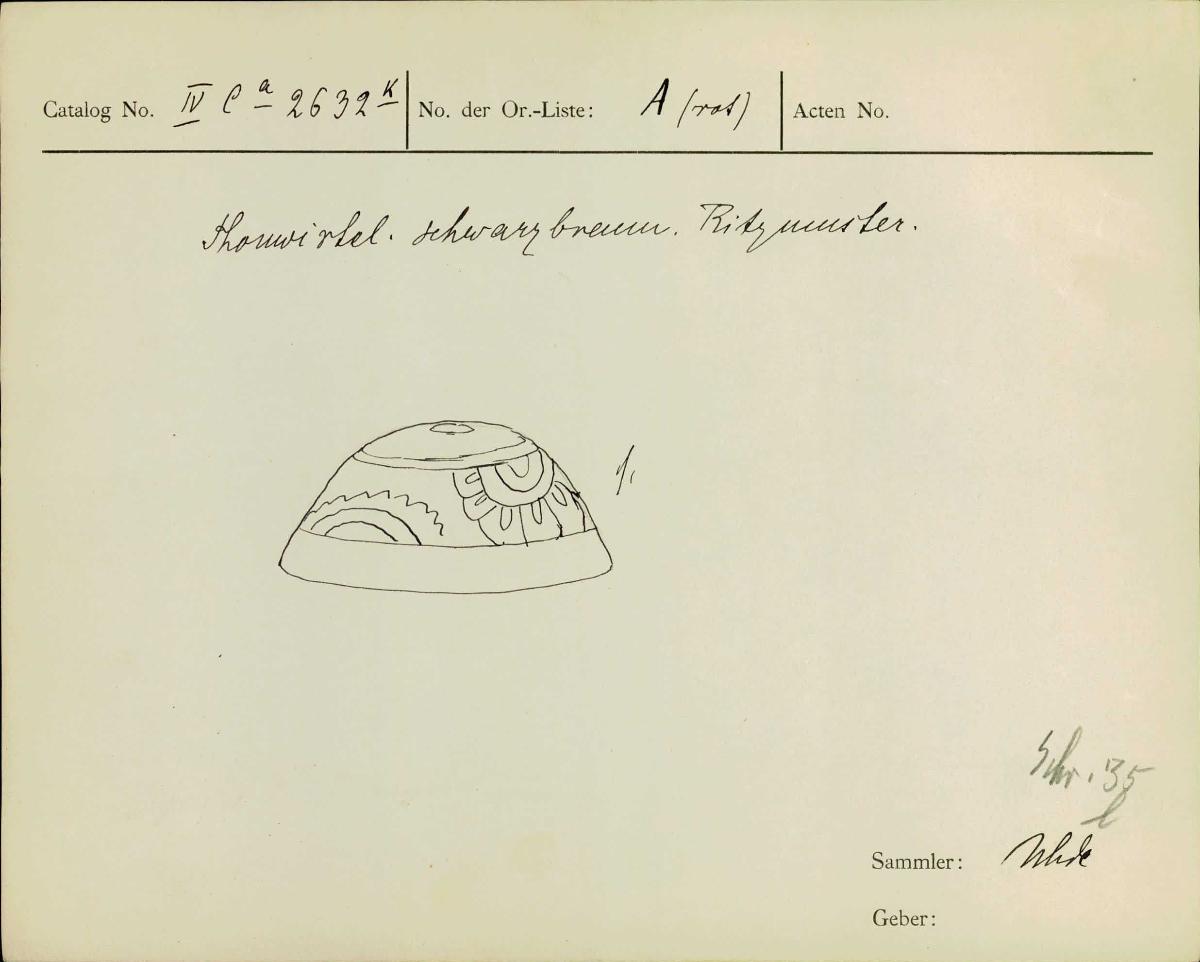 Catalog No. IV C a 2632 k No. der Or.-Liste: A (rot) Acten No.
Thonwirtel. schwarzbraun. Ritzmuster.
1/1
Schr. 35
l
Sammler: Uhde
Geber: